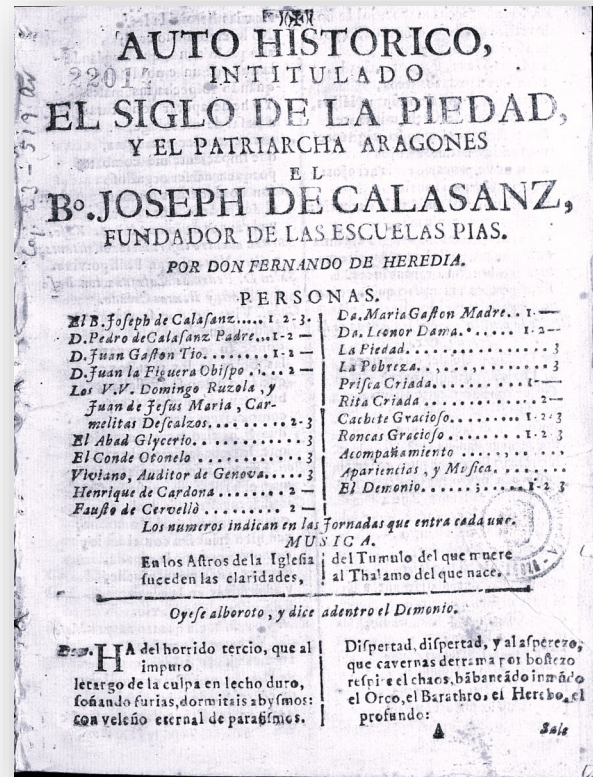 AUTO HISTORICO,
INTITULADO
EL SIGLO DE LA PIEDAD,
Y EL PATRIARCHA ARAGONES
EL
Bº. JOSEPH DE CALASANZ,
FUNDADOR DE LAS ESCUELAS PIAS.
POR DON FERNANDO DE HEREDIA.
PERSONAS.
El B. Joseph de Calasanz..... 1-2-3.
D. Pedro de Calasanz Padre...1-2 —
D. Juan Gaston Tio.........1-2 —
D. Juan la Figuera Obispo ....2 —
Los V.V. Domingo Ruzola, y
Juan de Jesus Maria, Car-
melitas Descalzos.........2-3
El Abad Glycerio...........3
El Conde Otonelo ..........3
Viviano, Auditor de Genova.....3
Henrique de Cardona ........2 —
Fausto de Cervellò .........2 —
Da. Maria Gaston Madre..1-—
Da. Leonor Dama.......1-2—
La Piedad..............3
La Pobreza.............3
Prisca Criada.........1-—
Rita Criada ..........2—
Cachete Gracioso.......1-2-3
Roncas Gracioso .......1-2-3
Acompañamiento .........
Apariencias, y Musica.......
El Demonio..........1-2 3
Los numeros indican en las Jornadas que entra cada uno.
MUSICA.
En los Astros de la Iglesia
suceden las claridades,
del Tumulo del que muere
al Thalamo del que nace.
Oyese alboroto, y dice adentro el Demonio.
Dem. HA del horrido tercio, que al
impuro
letargo de la culpa en lecho duro,
soñando furias, dormitais abysmos:
con veleño eternal de parasismos.
Dispertad, dispertad, y al asperezo,
que cavernas derrama por bostezo
respire el chaos, babeando inmũdo
el Orco, el Barathro, el Herebo, el
profundo:
A
Sale